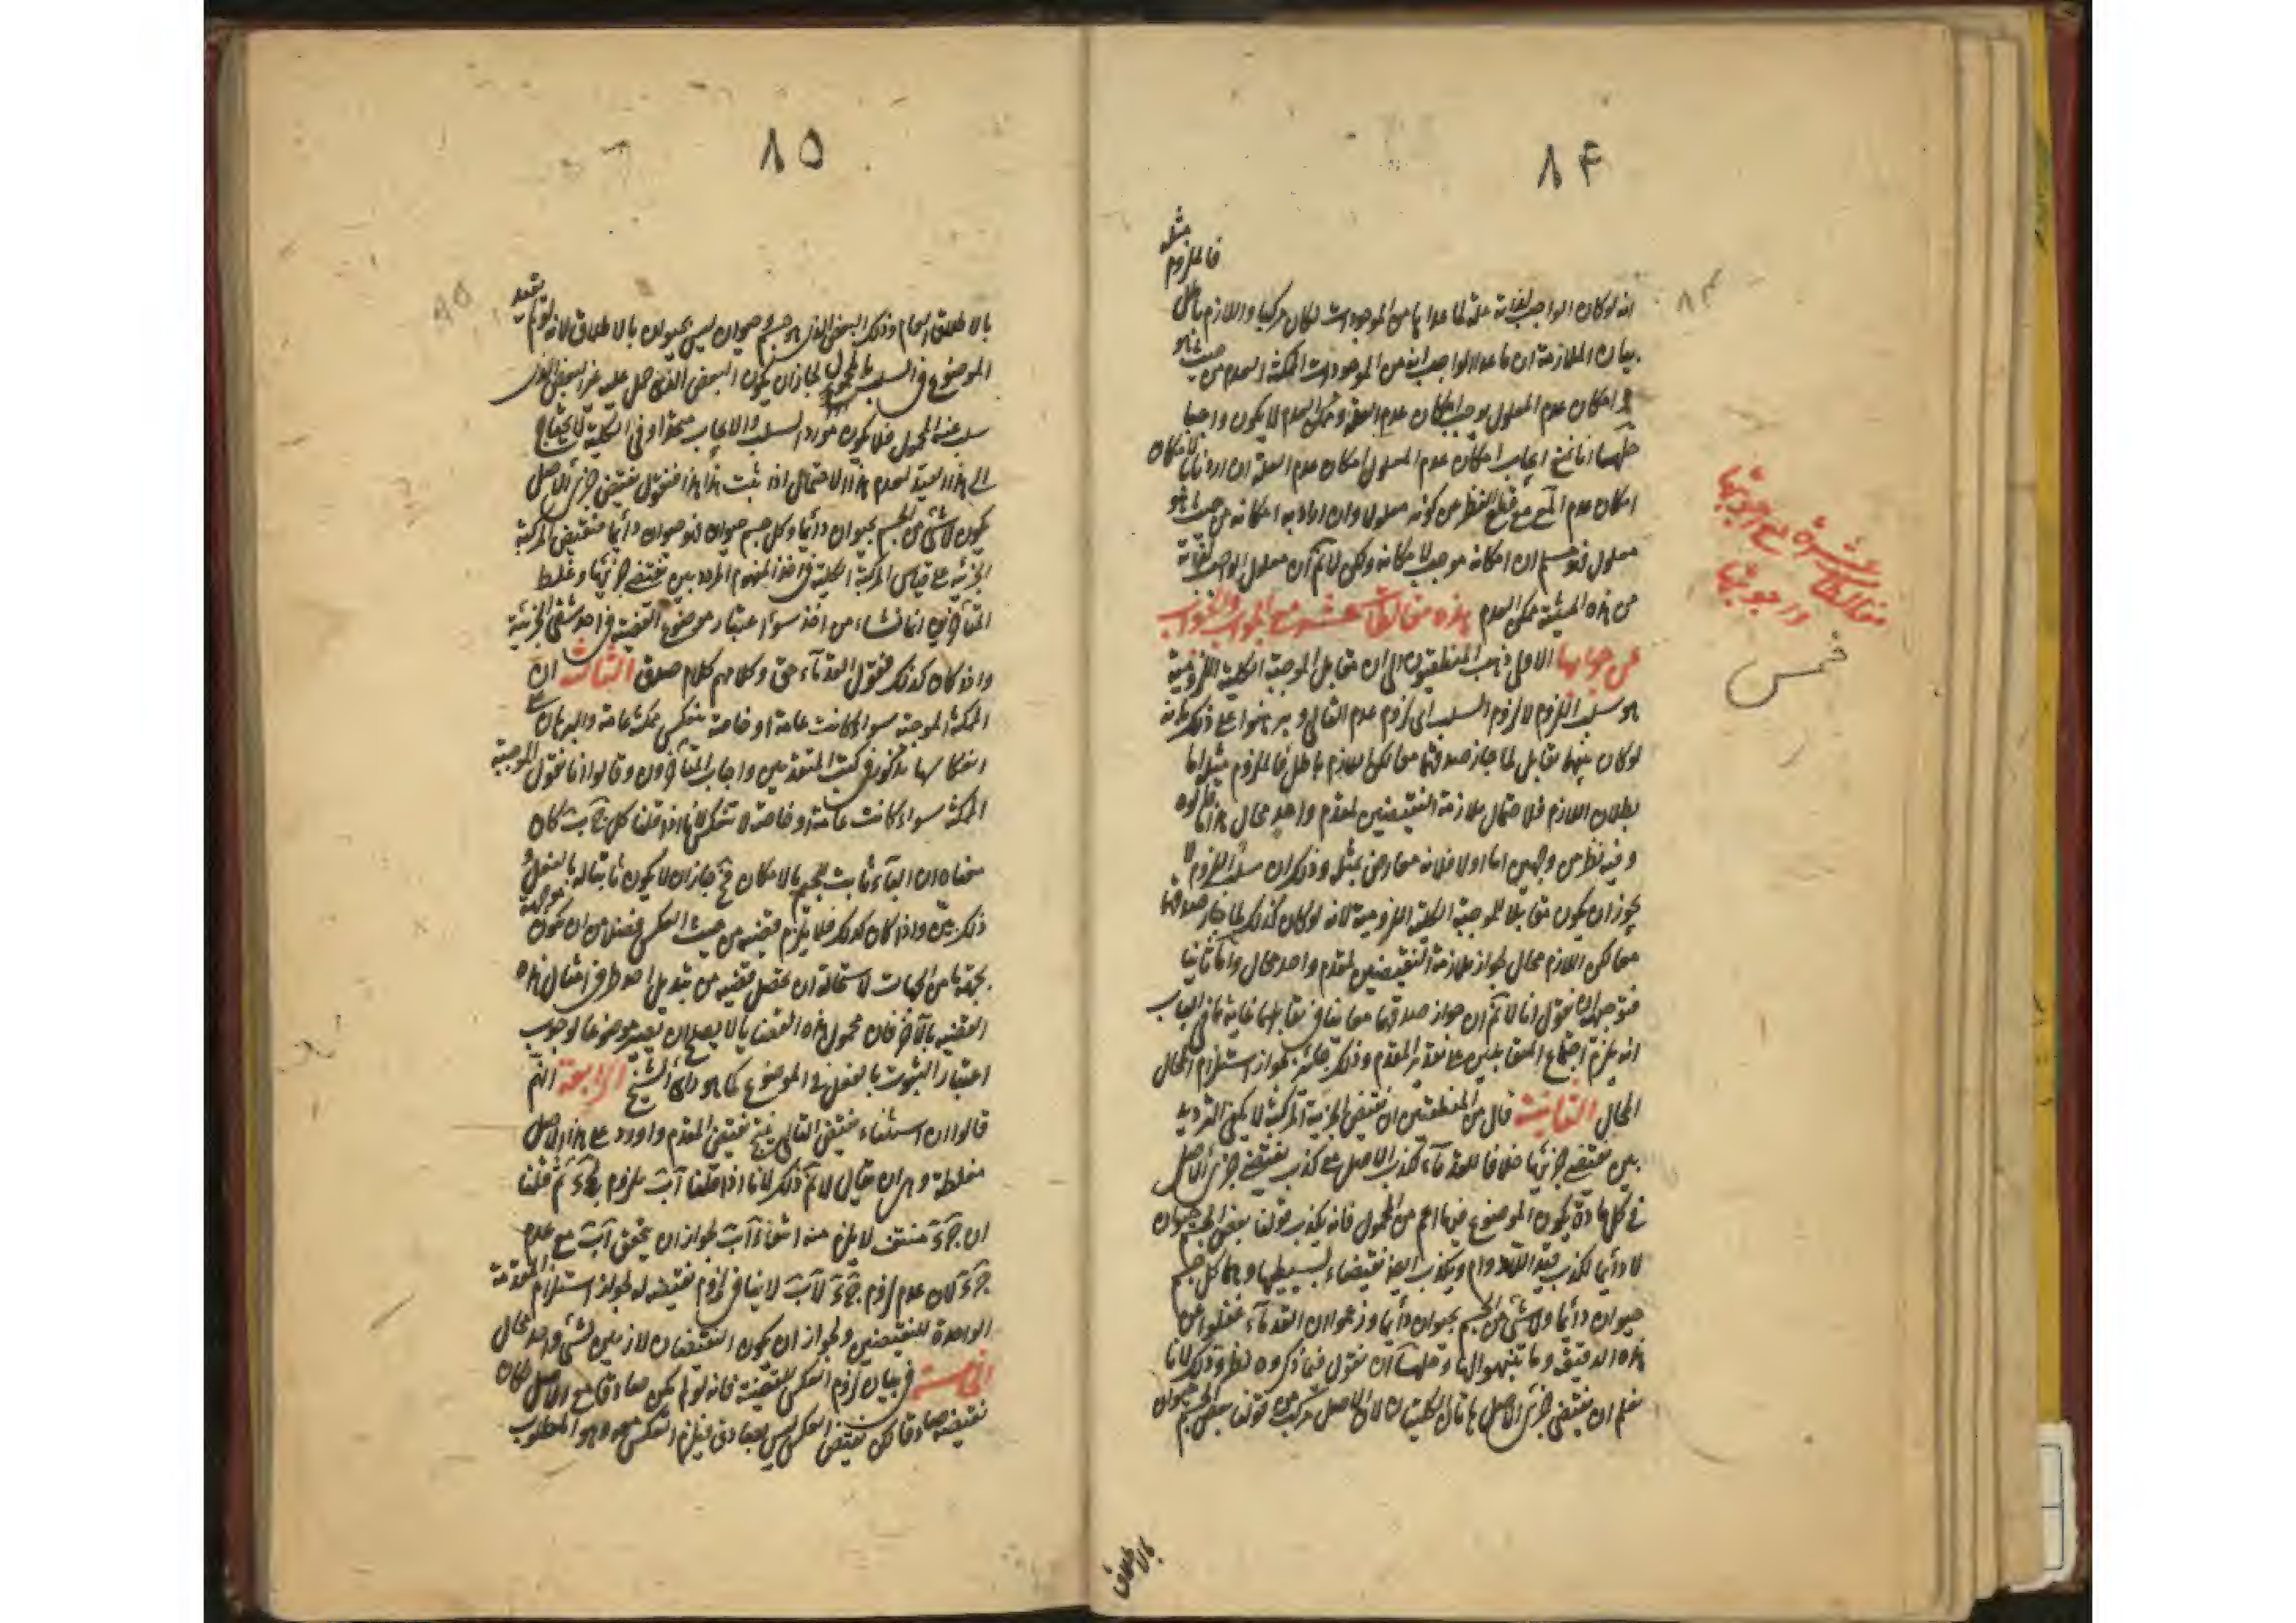 ٨۴
فالملزوم مثله
انه لوكان الواجب لذاته علة لما عداها من الموجودات لكان مركبا واللازم باطل
بيان الملازمة ان ما عدا الواجب لذاته من الموجودات الممكنة العدم من حيث هو
و امكان عدم المعلول يوجب امكان عدم العلة وممكن العدم لا يكون واجبا
حلها انا نمنع ايجاب امكان عدم المعلول امكان عدم العلة ان اردتم بالامكان
امكان عدم الممكن مع قطع النظر من كونه معلولا وان اراد به امكانه من حيث هو
معلول فنسلم ان امكانه موجب لامكانه ولكن لا نم ان معلول الواجب لذاته
من هذه الحيثية ممكن العدم هذه مغالطات عشرة مع الجواب والصواب
عن جوابها الاولى ذهب المنطقيون الى ان مقابل الموجبة الكلية اللزومية
هو سلب اللزوم لا لزوم السلب اى لزوم عدم التالى و برهنوا على ذلك بانه
لوكان بينهما تقابل لما جاز صدقهما معا لكن اللازم باطل فالملزوم مثله اما
بطلان اللازم فلاحتمال ملازمة النقيضين لمقدم واحد محال هذا ما قالوه
وفيه نظر من وجهين اما اولا فلانه معارض بمثله وذلك ان سلب اللزوم لا
يجوز ان يكون مقابلا للموجبة الكلية اللزومية لانه لوكان كذلك لما جاز صدقهما
معا لكن اللازم محال لجواز ملازمة النقيضين لمقدم واحد محال واما ثانيا
فتوجيهه ان نقول انا لا نم ان جواز صدقهما معا ينافى تقابلهما غاية ما فى الباب
انه يلزم اجتماع المتقابلين على تقدير المقدم وذلك جائز لجواز استلزام المحال
المحال الثانية قال من المنطقيين ان نقيض الجزئية المركبة لا يكفى الترديد
بين نقيضى جزئيها خلافا للقدماء لكذب الاصل مع كذب نقيضى جزئى الاصل
فى كل مادة يكون الموضوع فيها اعم من المحمول فانه يكذب قولنا بعض الجسم حيوان
لا دائما لكذب قيد اللادوام ويكذب ايضا نقيضاء لبسيطيها وهما كل جسم
حيوان دائما ولا شئ من الجسم بحيوان دائما وزعموا ان القدماء غفلوا عن
هذه الدقيقة وما تنبهوا لها وحلها ان نقول فيما ذكروه نظر وذلك لانا
نعلم ان نقيضى جزئى الاصل هاتان الكليتان لان الاصل مركب من قولنا بعض الجسم حيوان
بالاطلاق
مغالطات عشرة مع اجوبتها
واجوبتها
خمس
٨۴
٨٥
بالاطلاق العام وذلك البعض الذى هو جسم وحيوان ليس بحيوان بالاطلاق لانه لو لم يقيد
الموضوع فى السلب بالمحمول لجاز ان يكون البعض الذى حمل عليه غير البعض الذى
سلب عنه المحمول فلا يكون مورد السلب والايجاب متحدا وفى الكلية لا يحتاج
الى هذا القيد لعدم هذا الاحتمال اذا ثبت هذا فنقول نقيضى جزئى الاصل
يكون لا شئ من الجسم بحيوان دائما وكل جسم حيوان فهو حيوان دائما فنقيض المركبة
الجزئية على قياس المركبة الكلية فى اخذ المفهوم المردد بين نقيضى جزئيها وغلط
المتأخرين انما نشاء من اخذ سوء اعتبار موضوع القضية فى احد شقى الجزئية
واذا كان كذلك فقول القدماء حق وكلامهم كلام صدق الثالث ان
الممكنة الموجبة سواء كانت عامة او خاصة ينعكس ممكنة عامة والبرهان على
انعكاسها مذكور فى كتب المتقدمين واجاب المتأخرون وقالوا انا نقول الموجبة
الممكنة سواء كانت عامة او خاصة لا تنعكس لانا اذا قلنا كل ج ب كان
معناه ان الباء ثابت للجيم بالامكان فح جاز ان لا يكون ثابتا له بالفعل و
ذلك بين واذا كان كذلك فلا يلزم قضية من حيث العكس فضلا من ان يكون موجهة
بجهة ما من الجهات لاستحالة ان يحصل قضية من تبديل احد طرفى امثال هذه
القضية بالآخر فان محمول هذه القضايا لا يصلح ان يصير موضوعا لوجوب
اعتبار الثبوت بالفعل فى الموضوع كما هو راى الشيخ الرابعة انهم
قالوا ان استثناء نقيض التالى ينتج نقيض المقدم واورد على هذا الاصل
مغلطة وهى ان يقال لا نم ذلك لانا اذا قلنا آب ملزوم لجء ثم قلنا
ان جء منتف لا يلزم منه انتفاء آب لجواز ان يتحقق آب مع عدم
جء لان عدم لزوم جء لآب لا ينافى لزوم نقيضه له لجواز استلزام المقدمة
الواحدة للنقيضين ولجواز ان يكون النقيضان لازمين لشئ واحد محال
الخامسة فى بيان لزوم العكس للقضية فانه لو لم يكن صادقا مع الاصل لكان
نقيضه صادقا لكن نقيض العكس ليس بصادق فيلزم العكس معه وهو المطلوب
٨٥